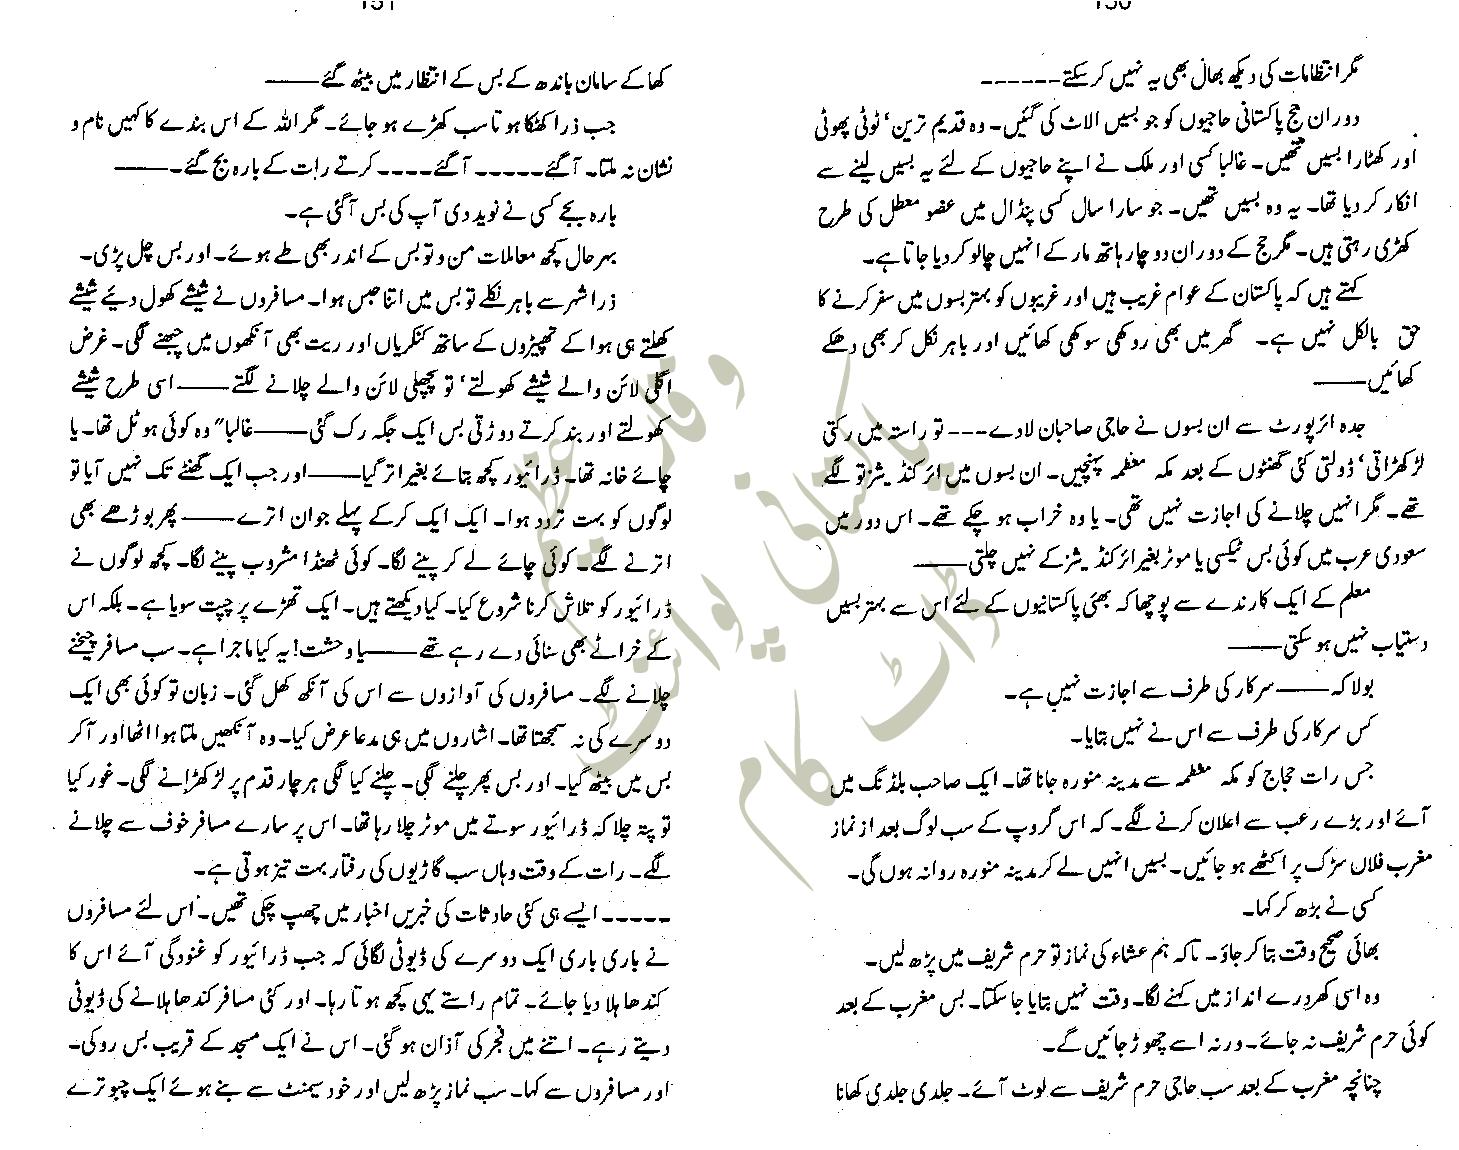 150
مگر انتظامات کی دیکھ بھال بھی یہ نہیں کر سکتے------
دوران حج پاکستانی حاجیوں کو جو بسیں الاٹ کی گئیں۔ وہ قدیم ترین‘ ٹوٹی پھوٹی
اور کھٹارا بسیں تھیں۔ غالبا کسی اور ملک نے اپنے حاجیوں کے لئے یہ بسیں لینے سے
انکار کر دیا تھا۔ یہ وہ بسیں تھیں۔ جو سارا سال کسی پنڈال میں عضو معطل کی طرح
کھڑی رہتی ہیں۔ مگر حج کے دوران دو چار ہاتھ مار کے انہیں چالو کر دیا جاتا ہے۔
کہتے ہیں کہ پاکستان کے عوام غریب ہیں اور غریبوں کو بہتر بسوں میں سفر کرنے کا
حق بالکل نہیں ہے۔ گھر میں بھی روکھی سوکھی کھائیں اور باہر نکل کر بھی دھکے
کھائیں——
جدہ ائرپورٹ سے ان بسوں نے حاجی صاحبان لادے--- تو راستہ میں رکتی
لڑکھڑاتی‘ ڈولتی کئی گھنٹوں کے بعد مکہ معظمہ پہنچیں۔ ان بسوں میں ائرکنڈیشنر تو لگے
تھے۔ مگر انہیں چلانے کی اجازت نہیں تھی۔ یا وہ خراب ہو چکے تھے۔ اس دور میں
سعودی عرب میں کوئی بس ٹیکسی یا موٹر بغیر ائرکنڈیشنر کے نہیں چلتی——
معلم کے ایک کارندے سے پوچھا کہ بھئی پاکستانیوں کے لئے اس سے بہتر بسیں
دستیاب نہیں ہو سکتی——
بولا کہ—— سرکار کی طرف سے اجازت نہیں ہے۔
کس سرکار کی طرف سے اس نے نہیں بتایا۔
جس رات حجاج کو مکہ معظمہ سے مدینہ منورہ جانا تھا۔ ایک صاحب بلڈنگ میں
آئے اور بڑے رعب سے اعلان کرنے لگے۔ کہ اس گروپ کے سب لوگ بعد از نماز
مغرب فلاں سڑک پر اکٹھے ہو جائیں۔ بسیں انہیں لے کر مدینہ منورہ روانہ ہوں گی۔
کسی نے بڑھ کر کہا۔
بھائی صحیح وقت بتا کر جاؤ۔ تاکہ ہم عشاء کی نماز تو حرم شریف میں پڑھ لیں۔
وہ اسی کھردرے انداز میں کہنے لگا۔ وقت نہیں بتایا جا سکتا۔ بس مغرب کے بعد
کوئی حرم شریف نہ جائے۔ ورنہ اسے چھوڑ جائیں گے۔
چنانچہ مغرب کے بعد سب حاجی حرم شریف سے لوٹ آئے۔ جلدی جلدی کھانا
151
کھا کے سامان باندھ کے بس کے انتظار میں بیٹھ گئے——
جب ذرا کھٹکا ہوتا سب کھڑے ہو جاتے۔ مگر اللہ کے اس بندے کا کہیں نام و
نشان نہ ملتا۔ آ گئے----- آ گئے---- کرتے رات کے بارہ بج گئے۔——
بارہ بجے کسی نے نوید دی آپ کی بس آ گئی ہے۔
بہرحال کچھ معاملات من و تو بس کے اندر بھی طے ہوئے۔ اور بس چل پڑی۔
ذرا شہر سے باہر نکلے تو بس میں اتنا حبس ہوا۔ مسافروں نے شیشے کھول دیئے شیشے
کھلتے ہی ہوا کے تھپیڑوں کے ساتھ کنکریاں اور ریت بھی آنکھوں میں چبھنے لگی۔ غرض
اگلی لائن والے شیشے کھولتے‘ تو پچھلی لائن والے چلانے لگتے—— اسی طرح شیشے
کھولتے اور بند کرتے دوڑتی بس ایک جگہ رک گئی——غالبا" وہ کوئی ہوٹل تھا۔ یا
چائے خانہ تھا۔ ڈرائیور کچھ بتائے بغیر اتر گیا——اور جب ایک گھنٹے تک نہیں آیا تو
لوگوں کو بہت تردد ہوا۔ ایک ایک کر کے پہلے جوان اترے—— پھر بوڑھے بھی
اترنے لگے۔ کوئی چائے لے کر پینے لگا۔ کوئی ٹھنڈا مشروب پینے لگا۔ کچھ لوگوں نے
ڈرائیور کو تلاش کرنا شروع کیا۔ کیا دیکھتے ہیں۔ ایک تھڑے پر چت سویا ہے۔ بلکہ اس
کے خراٹے بھی سنائی دے رہے تھے——یا وحشت! یہ کیا ماجرا ہے۔ سب مسافر چیخنے
چلانے لگے۔ مسافروں کی آوازوں سے اس کی آنکھ کھل گئی۔ زبان تو کوئی بھی ایک
دوسرے کی نہ سمجھتا تھا۔ اشاروں میں ہی مدعا عرض کیا۔ وہ آنکھیں ملتا ہوا اٹھا اور آ کر
بس میں بیٹھ گیا۔ اور بس پھر چلنے لگی۔ چلنے کیا لگی ہر چار قدم پر لڑکھڑانے لگی۔ غور کیا
تو پتہ چلا کہ ڈرائیور سوتے میں موٹر چلا رہا تھا۔ اس پر سارے مسافر خوف سے چلانے
لگے۔ رات کے وقت وہاں سب گاڑیوں کی رفتار بہت تیز ہوتی ہے۔
----- ایسے ہی کئی حادثات کی خبریں اخبار میں چھپ چکی تھیں۔ اس لئے مسافروں
نے باری باری ایک دوسرے کی ڈیوٹی لگائی کہ جب ڈرائیور کو غنودگی آئے اس کا
کندھا ہلا دیا جائے۔ تمام راستے یہی کچھ ہوتا رہا۔ اور کئی مسافر کندھا ہلانے کی ڈیوٹی
دیتے رہے۔ اتنے میں فجر کی آذان ہو گئی۔ اس نے ایک مسجد کے قریب بس روکی۔
اور مسافروں سے کہا۔ سب نماز پڑھ لیں اور خود سیمنٹ سے بنے ہوئے ایک چبوترے
وقار عظیم
پاکستانی پوائنٹ
ڈاٹ کام